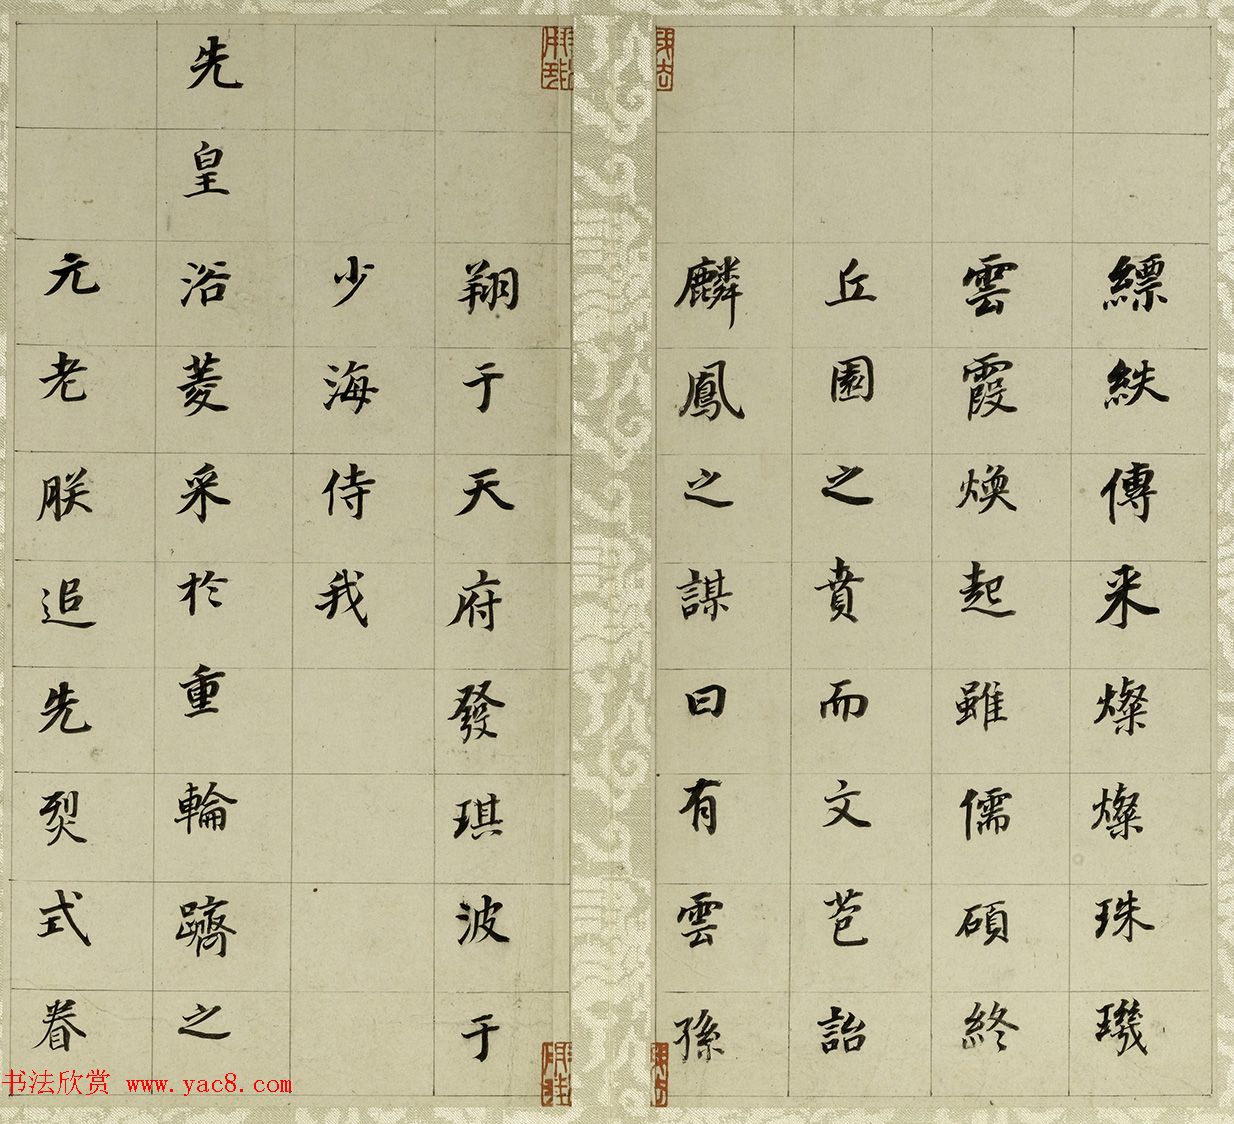 縹紩傳来燦燦珠璣
雲霞煥起雖儒碩終
丘園之賁而文芑詒
麟鳳之謀曰有雲孫
翔于天府發琪波于
少海侍我
先皇浴菱采於重輪躋之
元老朕追先烈式眷
书法欣赏 www.yac8.com